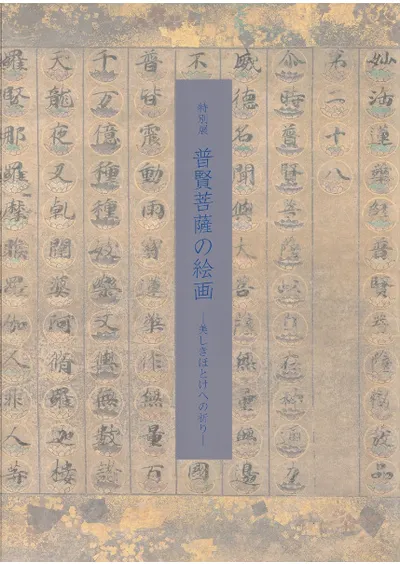 妙法蓮華經普賢菩薩勸發品
第二十八
尒時普賢菩薩以自在神通力
威德名聞與大菩薩無量無邊
特別展
普賢菩薩の絵画
―美しきほとけへの祈り―
不
國
普皆震動雨寶蓮華作無量百
千万億種種妓樂又與無數諸
天龍夜叉乾闥婆阿脩羅迦樓
羅緊那羅摩睺羅伽人非人等